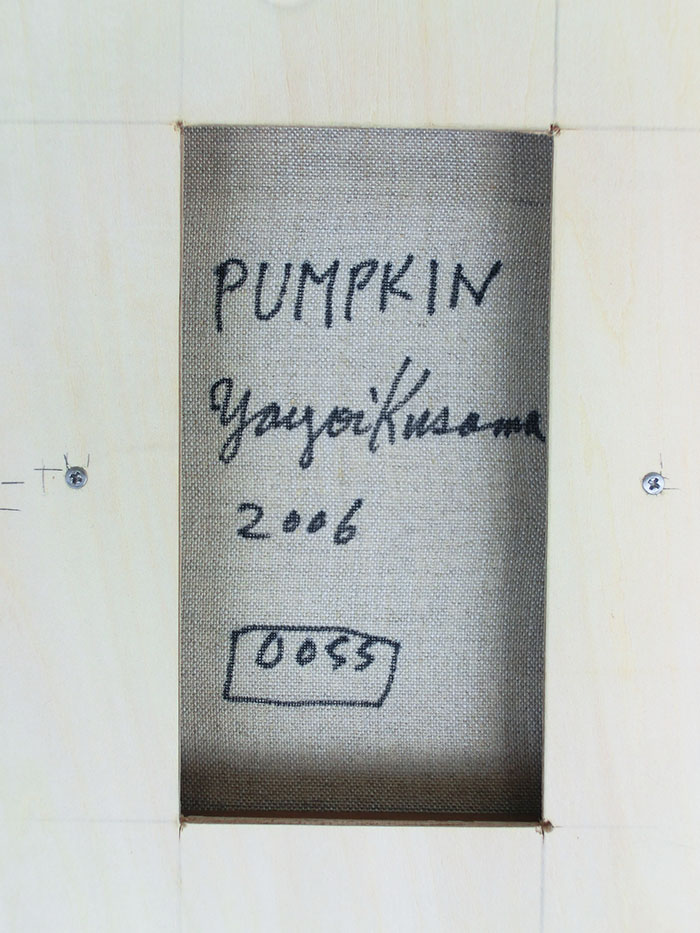 PUMPKIN
Yayoi Kusama
2006
0055